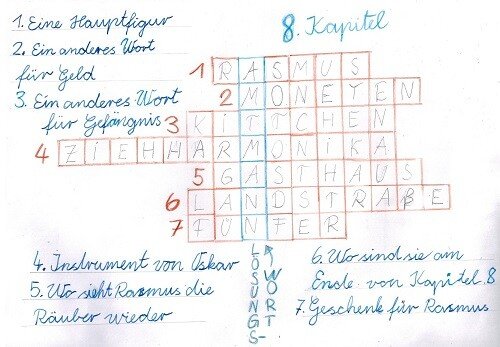 1. Eine Hauptfigur
8. Kapitel
2. Ein anderes Wort
für Geld
3. Ein anderes Wort
für Gefängnis
1 RASMUS
2 MONETEN
3 KITTCHEN
4 ZIEHHARMONIKA
5 GASTHAUS
6 LANDSTRAßE
7 FÜNFER
LÖSUNGS-
WORT
4. Instrument von Oskar
5. Wo sieht Rasmus die
Räuber wieder
6. Wo sind sie am
Ende von Kapitel 8
7. Geschenk für Rasmus